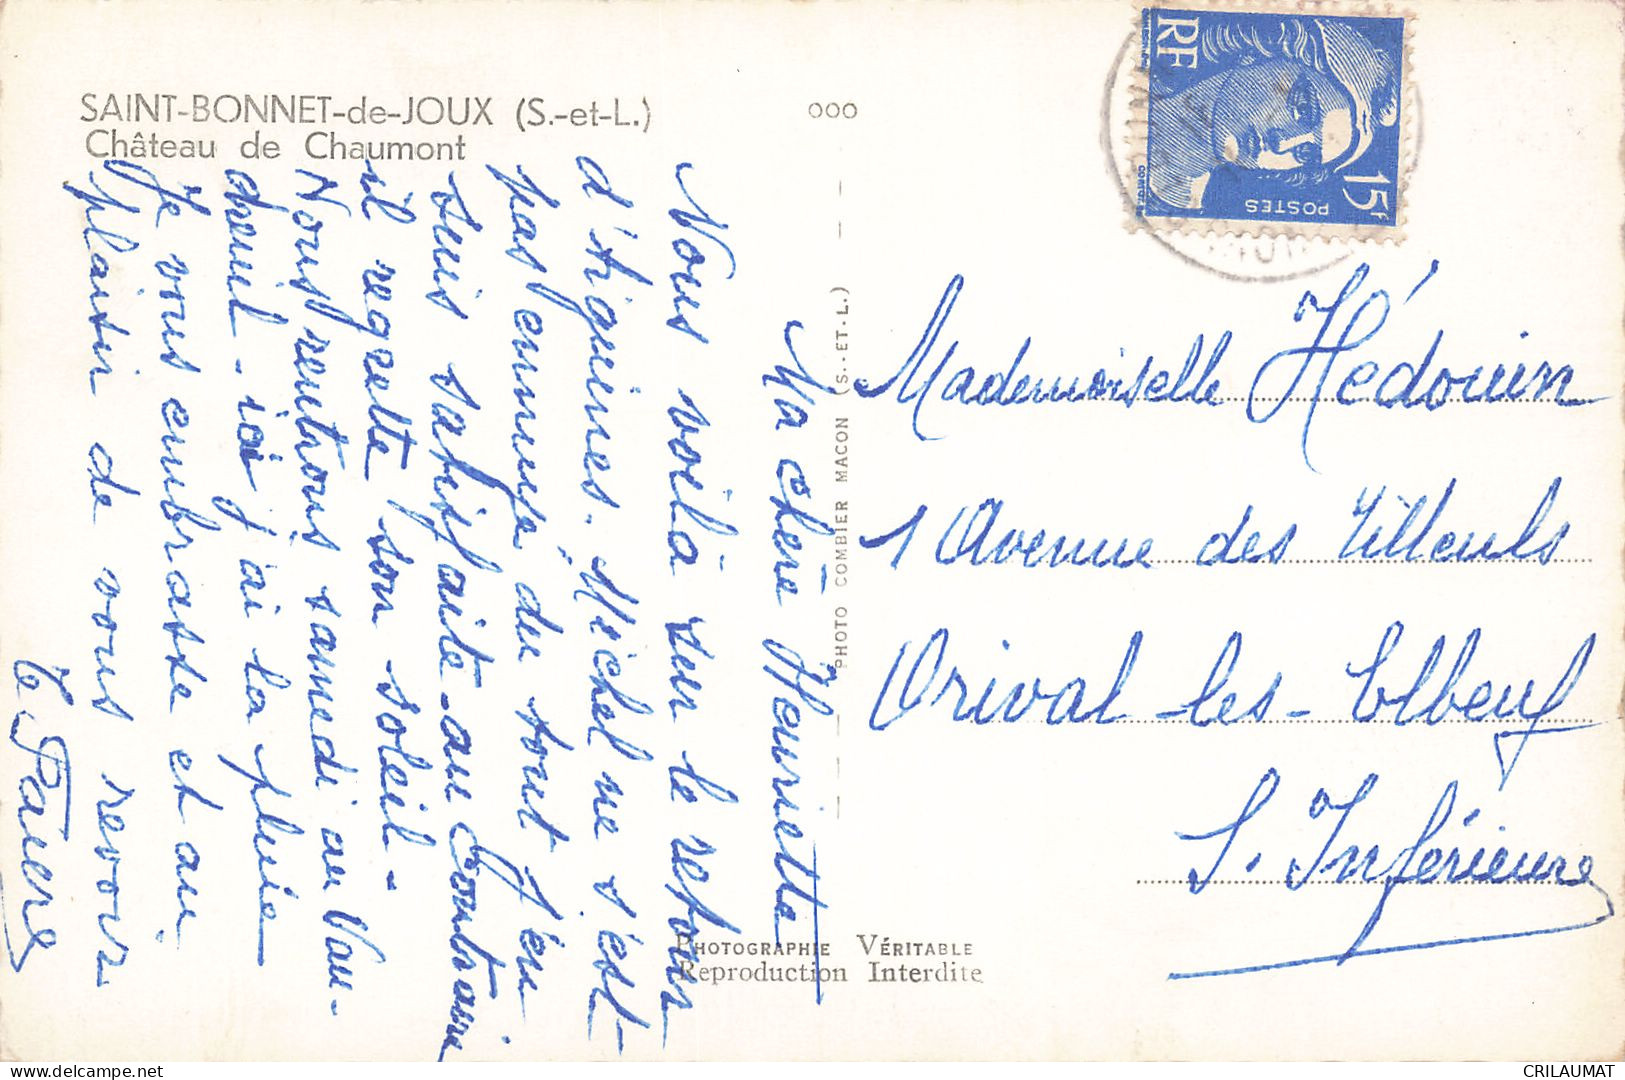 SAINT-BONNET-de-JOUX (S.-et-L.)
Château de Chaumont
000
RF
15F
POSTES
Ma chère Henriette
Nous voilà sur le retour
d'Aiguines. Michel ne s'est
pas ennuyé du tout j'en
suis satisfaite - au contraire
il regrette son soleil -
Nous rentrons samedi au Vau-
dreuil - ici j'ai la pluie
Je vous embrasse et au
plaisir de vous revoir
PHOTO COMBIER MACON (S.-ET-L.)
Mademoiselle Hédouin
1 Avenue des Tilleuls
Orival-les-Elbeuf
S. Inférieure
PHOTOGRAPHIE VÉRITABLE
Reproduction Interdite
CRILAUMAT